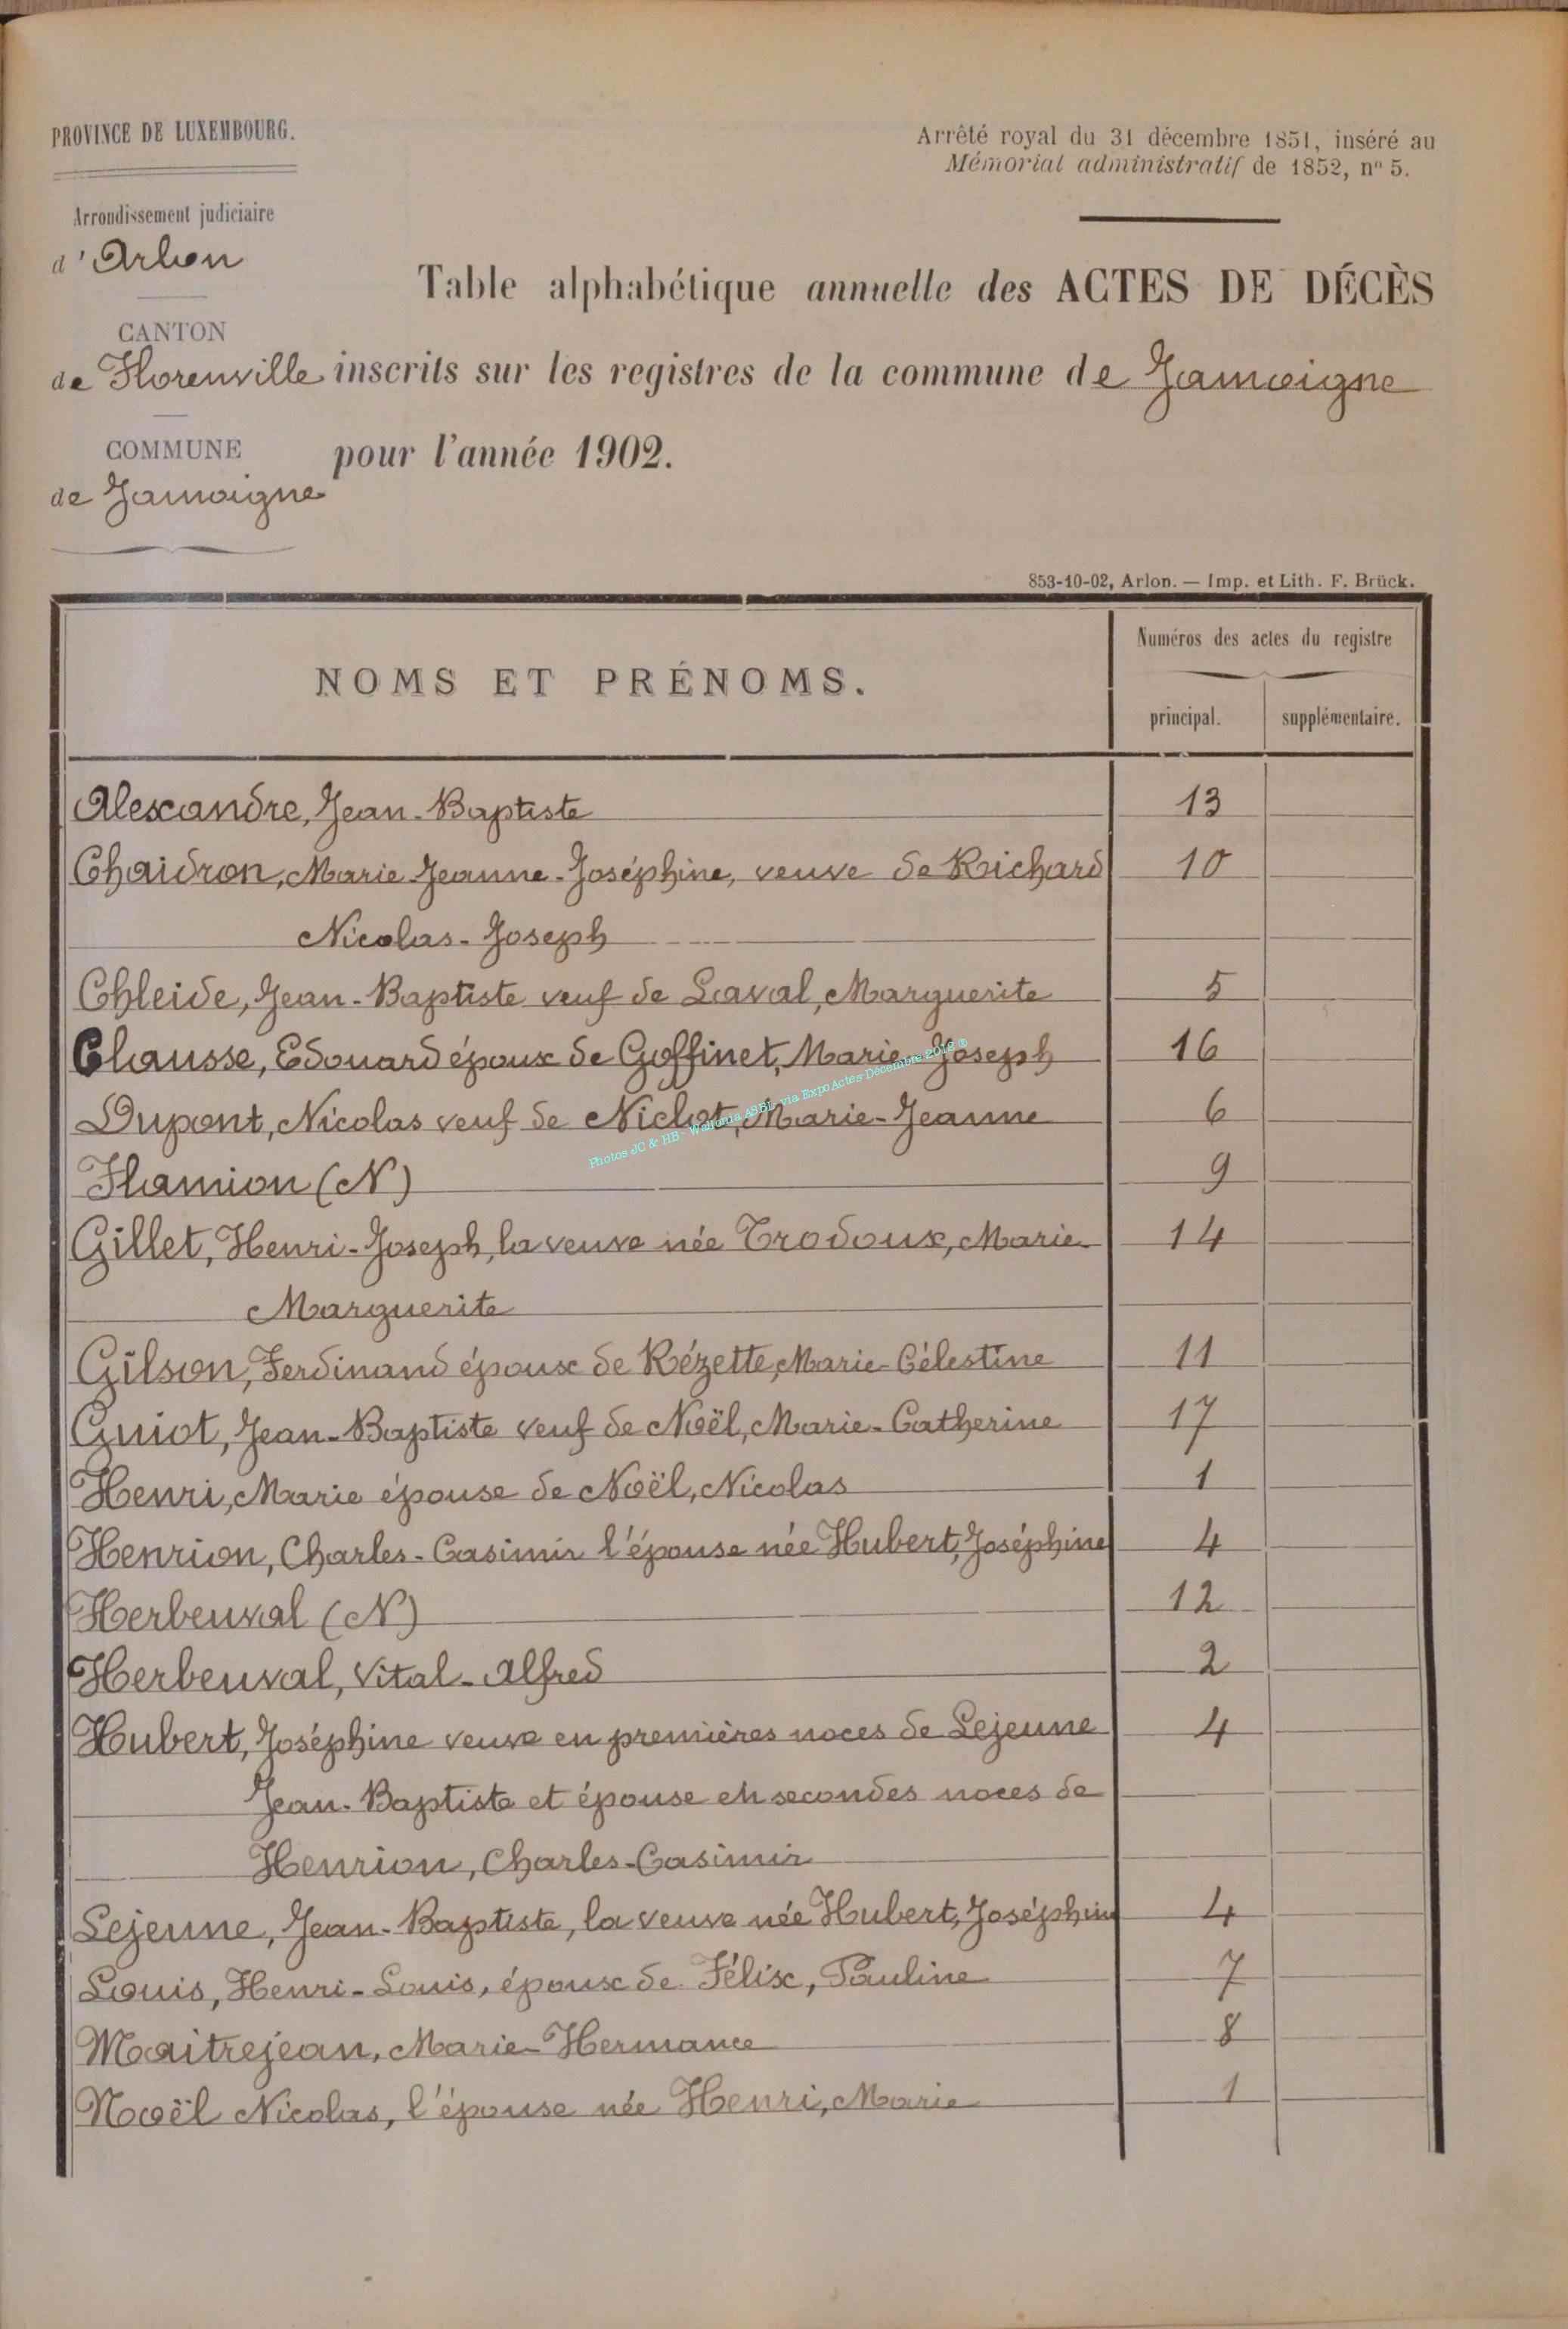 PROVINCE DE LUXEMBOURG.
Arrêté royal du 31 décembre 1851, inséré au
Mémorial administratif de 1852, nº 5.
Arrondissement judiciaire
d'Arlon
CANTON
de Florenville
COMMUNE
de Jamoigne
Table alphabétique annuelle des ACTES DE DÉCÈS
inscrits sur les registres de la commune de Jamoigne
pour l'année 1902.
853-10-02, Arlon. — Imp. et Lith. F. Brück.
NOMS ET PRÉNOMS.
Numéros des actes du registre
principal. supplémentaire.
Alexandre, Jean-Baptiste 13
Chaidron, Marie-Jeanne-Joséphine, veuve de Richard 10
Nicolas-Joseph
Chleide, Jean-Baptiste veuf de Laval, Marguerite 5
Clausse, Edouard époux de Goffinet, Marie-Joseph 16
Dupont, Nicolas veuf de Niclot, Marie-Jeanne 6
Photos JC & HB - Wallonia ASBL via ExpoActes Décembre 2016 ®
Flamion (N) 9
Gillet, Henri-Joseph, la veuve née Trodoux, Marie- 14
Marguerite
Gilson, Ferdinand époux de Rézette, Marie-Célestine 11
Guiot, Jean-Baptiste veuf de Noël, Marie-Catherine 17
Henri, Marie épouse de Noël, Nicolas 1
Henrion, Charles-Casimir l'épouse née Hubert, Joséphine 4
Herbeuval (N) 12
Herbeuval, Vital-Alfred 2
Hubert, Joséphine veuve en premières noces de Lejeune 4
Jean-Baptiste et épouse en secondes noces de
Henrion, Charles-Casimir
Lejeune, Jean-Baptiste, la veuve née Hubert, Joséphine 4
Louis, Henri-Louis, époux de Félix, Pauline 7
Maitrejean, Marie-Hermance 8
Noël Nicolas, l'épouse née Henri, Marie 1